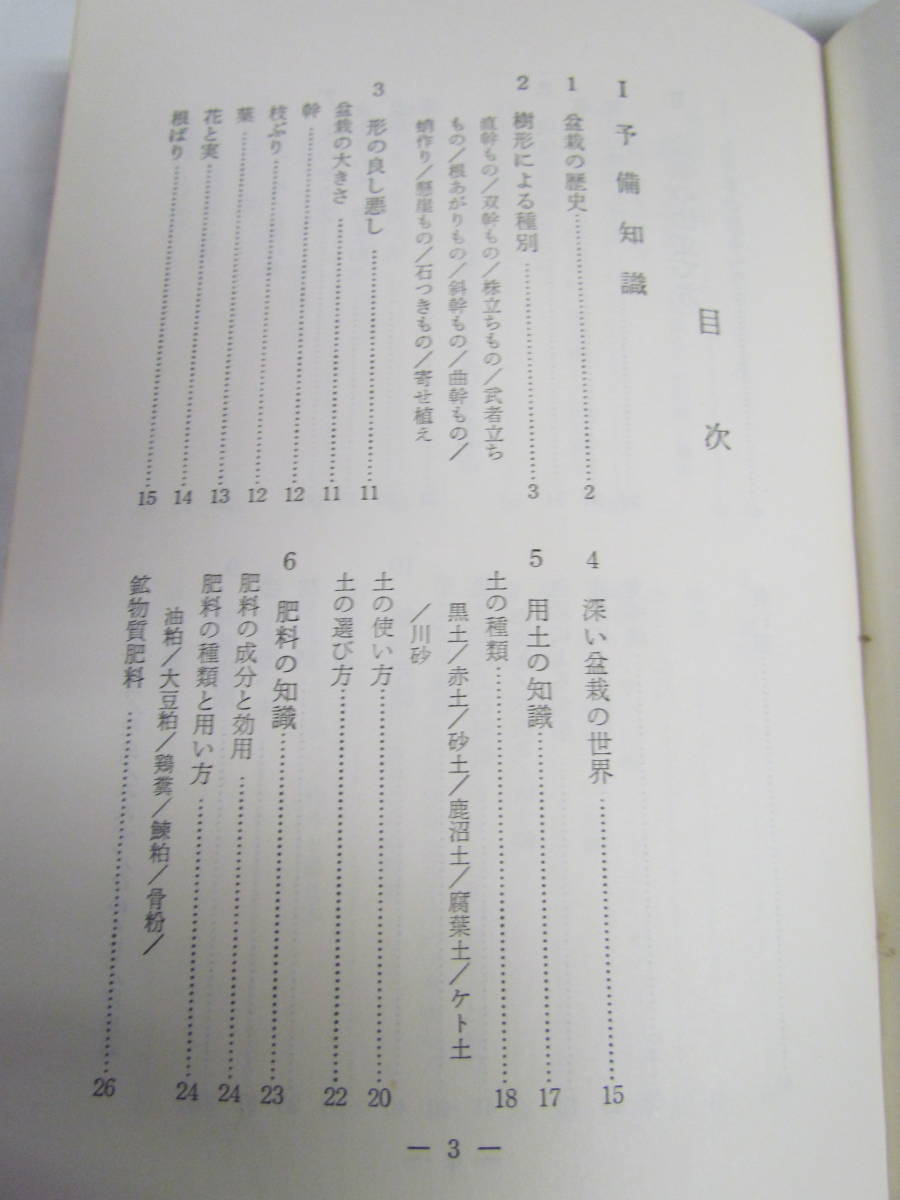 目次
I 予備知識
1 盆栽の歴史……………………2
2 樹形による種別……………………3
直幹もの/双幹もの/株立ちもの/武者立ち
もの/根あがりもの/斜幹もの/曲幹もの/
蛸作り/懸崖もの/石つきもの/寄せ植え
3 形の良し悪し……………………11
盆栽の大きさ……………………11
幹……………………12
枝ぶり……………………12
葉……………………13
花と実……………………14
根ばり……………………15
4 深い盆栽の世界……………………15
5 用土の知識……………………17
土の種類……………………18
黒土/赤土/砂土/鹿沼土/腐葉土/ケト土
/川砂
土の使い方……………………20
土の選び方……………………22
6 肥料の知識……………………23
肥料の成分と効用……………………24
肥料の種類と用い方……………………24
油粕/大豆粕/鶏糞/鰊粕/骨粉/
鉱物質肥料……………………26
— 3 —